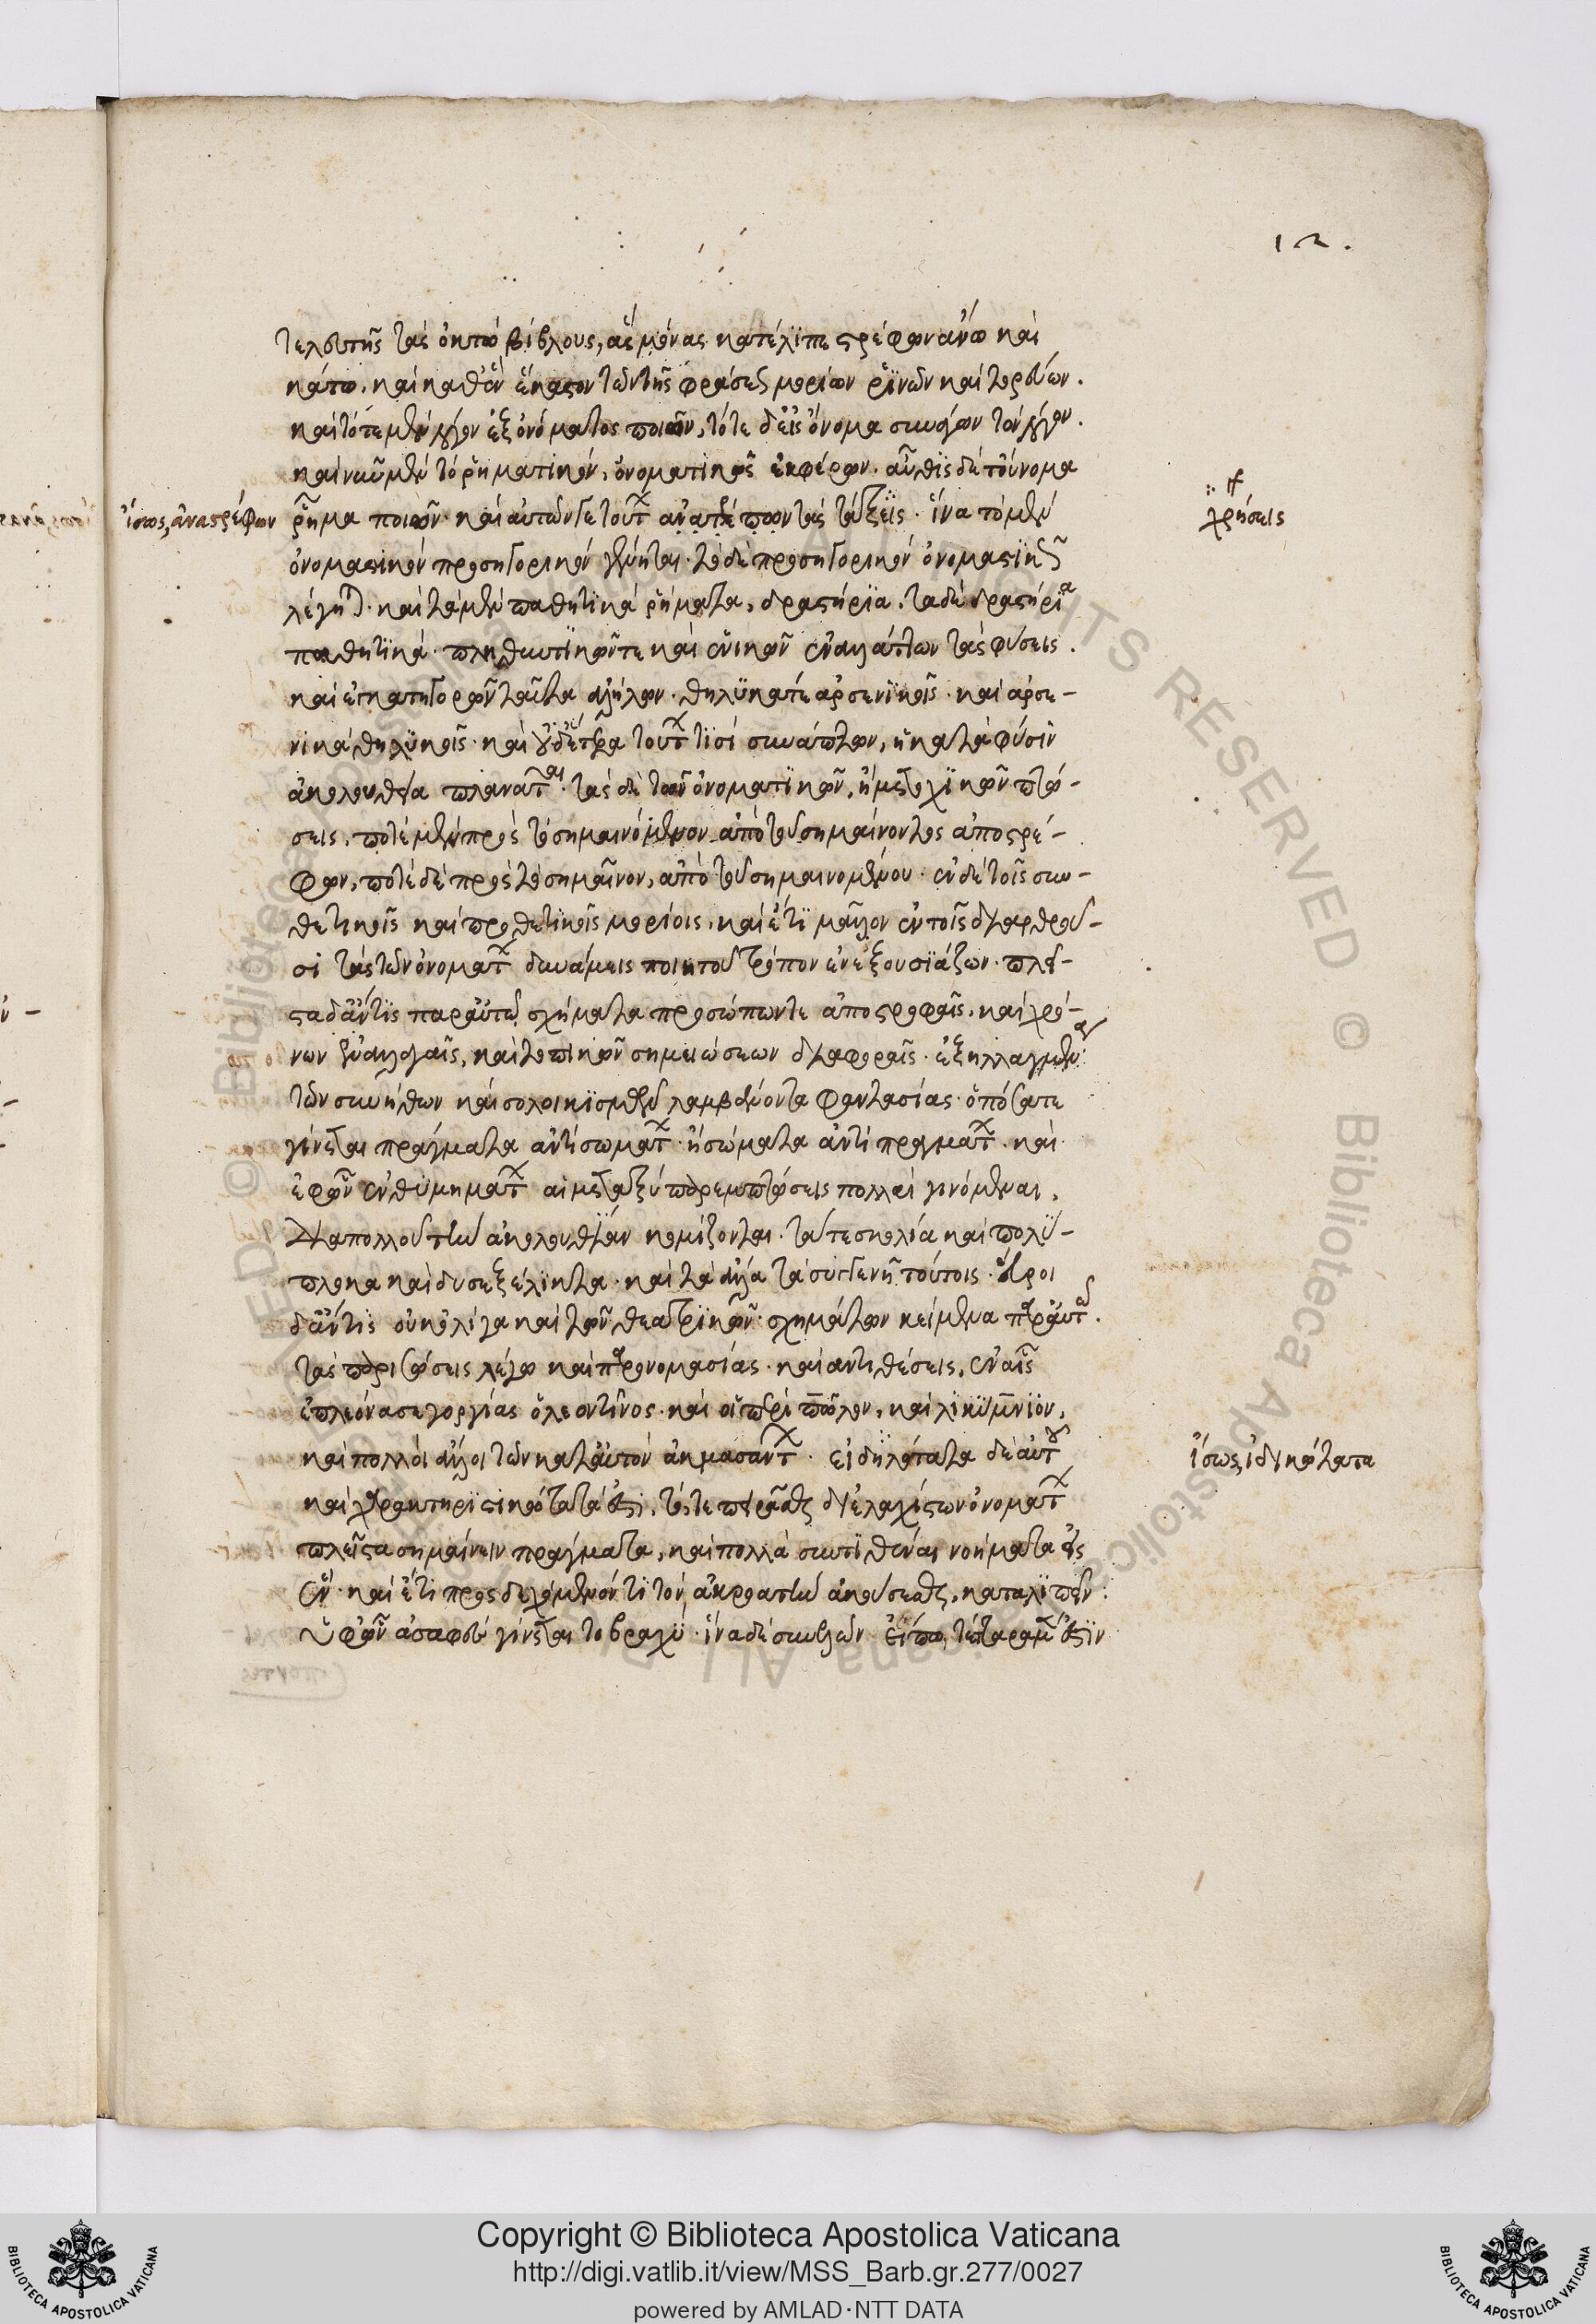 12.
τελευτῆς τὰς ὀκτὼ βίβλους, ἃς μόνας κατέλιπε στρέφων ἄνω καὶ
κάτω. καὶ καθ' ἓν ἕκαστον τῶν τῆς φράσεως μορίων ῥινῶν καὶ τορεύων.
καὶ τότε μὲν λόγον ἐξ ὀνόματος ποιῶν, τότε δ' εἰς ὄνομα συνάγων τὸν λόγον.
καὶ νῦν μὲν τὸ ῥηματικὸν, ὀνοματικῶς ἐκφέρων. αὖθις δὲ τοὔνομα
ἴσως, ἀναστρέφων
ῥῆμα ποιῶν. καὶ αὐτῶν γε τούτων τὰς τάξεις. ἵνα τὸ μὲν
χρήσεις
ὀνομαστικὸν προσηγορικὸν γένηται. τὸ δὲ προσηγορικὸν ὀνομαστικῶς
λέγηται. καὶ τὰ μὲν παθητικὰ ῥήματα, δραστήρια. τὰ δὲ δραστήρια
παθητικά. πληθυντικῶν τε καὶ ἑνικῶν ἐναλάττων τὰς φύσεις.
καὶ ἐκατηγορῶν ταῦτα ἀλλήλων. θηλυκά τε ἀρσενικοῖς. καὶ ἀρσε-
νικὰ θηλυκοῖς. καὶ οὐδέτερα τούτων τισὶ συνάπτων, ἡ κατὰ φύσιν
ἀκολουθία πλανᾶται. τὰς δὲ τῶν ὀνοματικῶν, ἢ μετοχικῶν πτώ-
σεις, ποτὲ μὲν πρὸς τὸ σημαινόμενον ἀπὸ τοῦ σημαίνοντος ἀποστρέ-
φων, ποτὲ δὲ πρὸς τὸ σημαῖνον, ἀπὸ τοῦ σημαινομένου. ἐν δὲ τοῖς συν-
θετικοῖς καὶ προθετικοῖς μορίοις, καὶ ἔτι μᾶλλον ἐν τοῖς διαρθροῦ-
σι τὰς τῶν ὀνομάτων δυνάμεις ποιητοῦ τρόπον ἐνεξουσιάζων. πλεῖ-
στα δ' ἄν τις παρ' αὐτῷ σχήματα προσώπων τε ἀποστροφαῖς, καὶ χρό-
νων ἐναλλαγαῖς, καὶ τοπικῶν σημειώσεων διαφοραῖς. ἐξηλλαγμένα
τῶν συνήθων καὶ σολοικισμοῦ λαμβάνοντα φαντασίας. ὁπόσα τε
γίνεται πράγματα ἀντὶ σωμάτων. ἢ σώματα ἀντὶ πραγμάτων. καὶ
ἐφ' ὧν ἐνθυμημάτων αἱ μεταξὺ παρεμπτώσεις πολλαὶ γινόμεναι,
διὰ πολλοῦ τὴν ἀκολουθίαν κομίζονται. τά τε σκολιὰ καὶ πολύ-
πλοκα καὶ δυσεξέλικτα. καὶ τὰ ἄλλα τὰ συγγενῆ τούτοις. εὕροι
δ' ἄν τις οὐκ ὀλίγα καὶ τῶν θεατρικῶν σχημάτων κείμενα παρ' αὐτῷ.
τὰς παρισώσεις λέγω καὶ παρονομασίας. καὶ ἀντιθέσεις, ἐν αἷς
ἐπλεόνασε γοργίας ὁ λεοντῖνος. καὶ οἱ περὶ πῶλον, καὶ λικύμνιον,
καὶ πολλοὶ ἄλλοι τῶν κατ' αὐτὸν ἀκμασάντων. εἰδηλότατα δὲ αὐτοῦ
ἴσως, ἰδικώτατα
καὶ χαρακτηριστικώτατά ἐστι, τό, τε πειρᾶσθαι δι' ἐλαχίστων ὀνομάτων
πλεῖστα σημαίνειν πράγματα, καὶ πολλὰ συντιθέναι νοήματα εἰς
ἕν. καὶ ἔτι προσδεχόμενόν τι τὸν ἀκροατὴν ἀκούσεσθαι, καταλιπεῖν.
ὑφ' ὧν ἀσαφὲς γίνεται τὸ βραχύ. ἵνα δὲ συνελὼν εἴπω, τέτταρα μέν ἐστιν